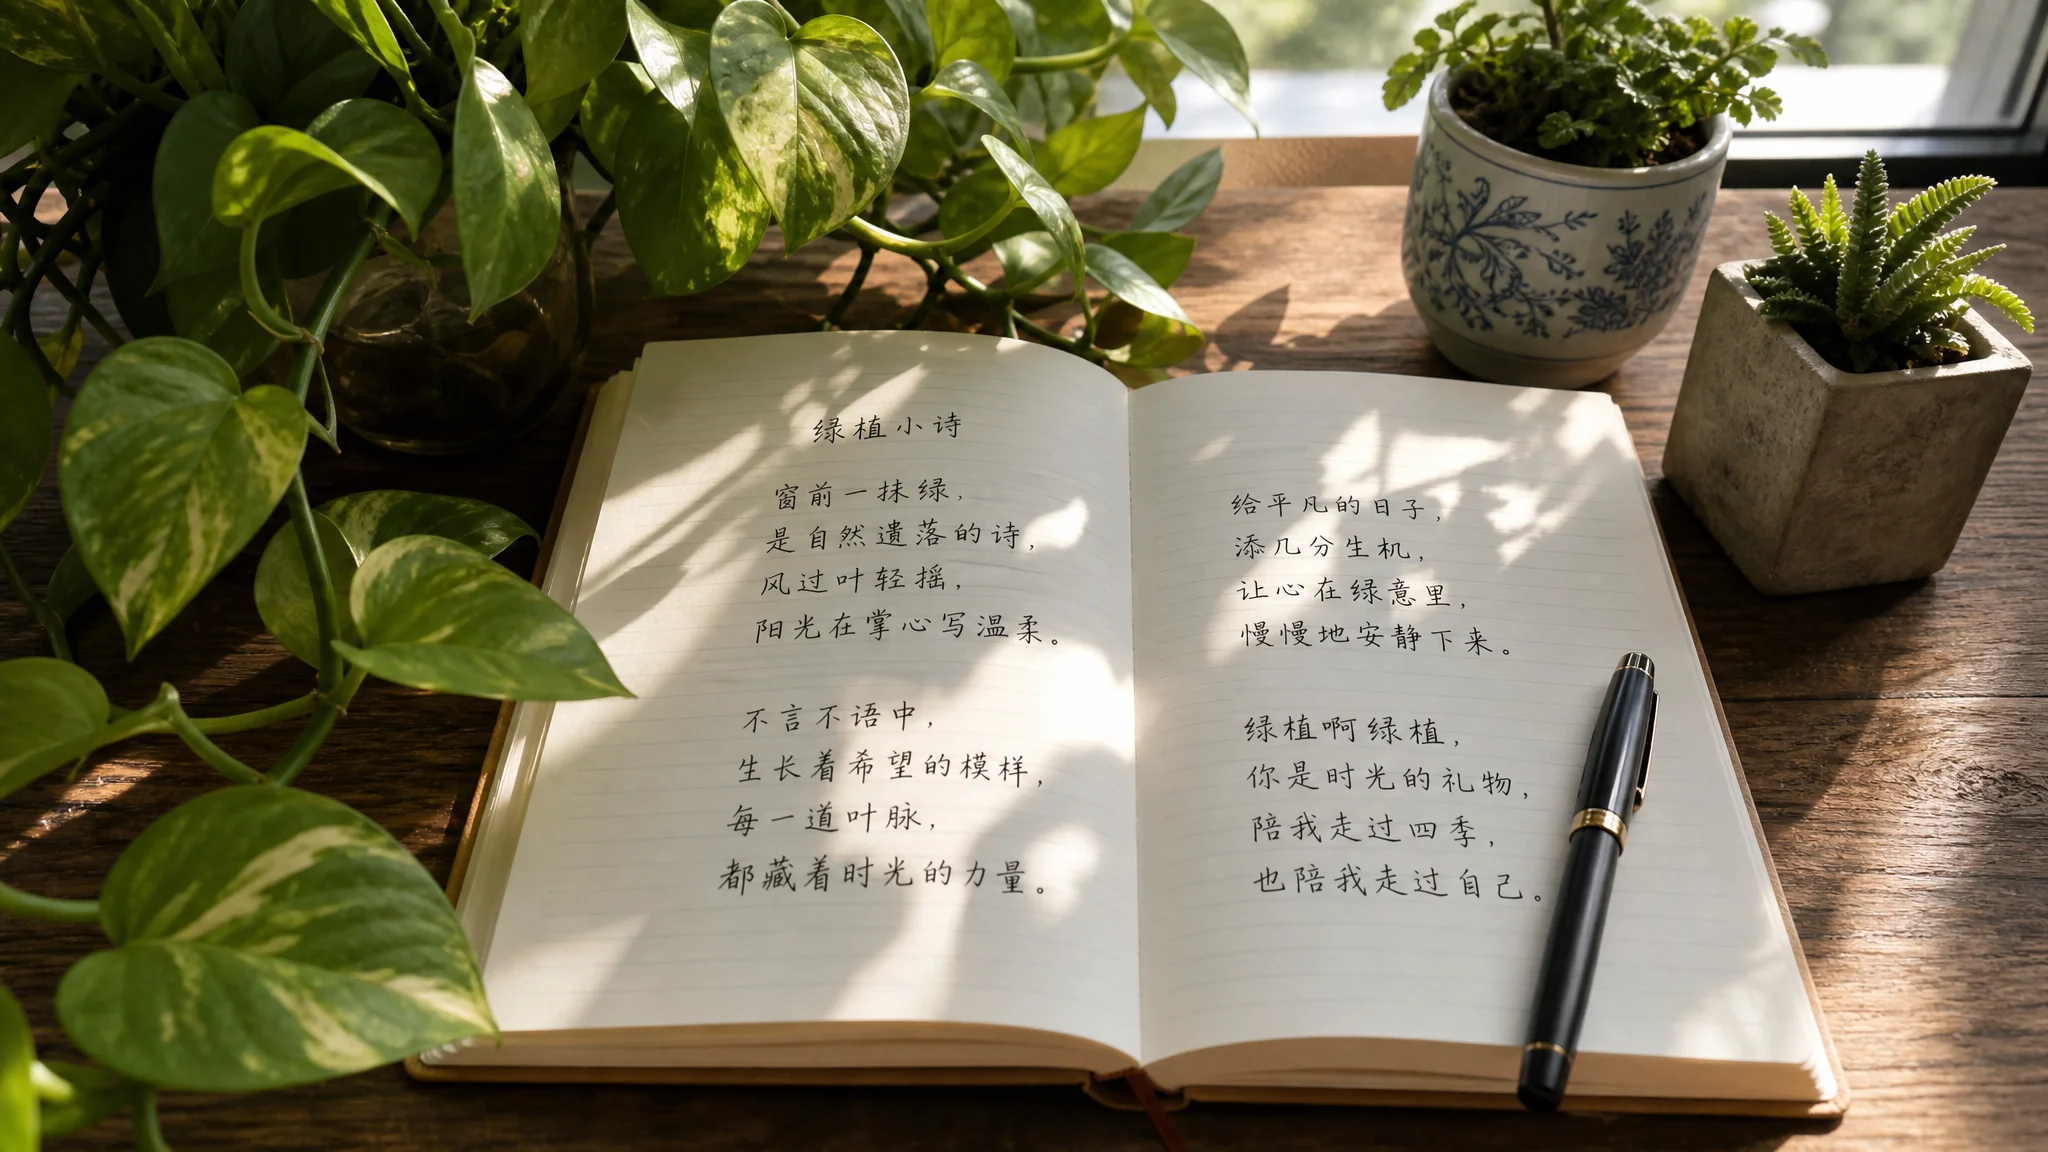 绿植小诗
窗前一抹绿，
是自然遗落的诗，
风过叶轻摇，
阳光在掌心写温柔。
不言不语中，
生长着希望的模样，
每一道叶脉，
都藏着时光的力量。
给平凡的日子，
添几分生机，
让心在绿意里，
慢慢地安静下来。
绿植啊绿植，
你是时光的礼物，
陪我走过四季，
也陪我走过自己。